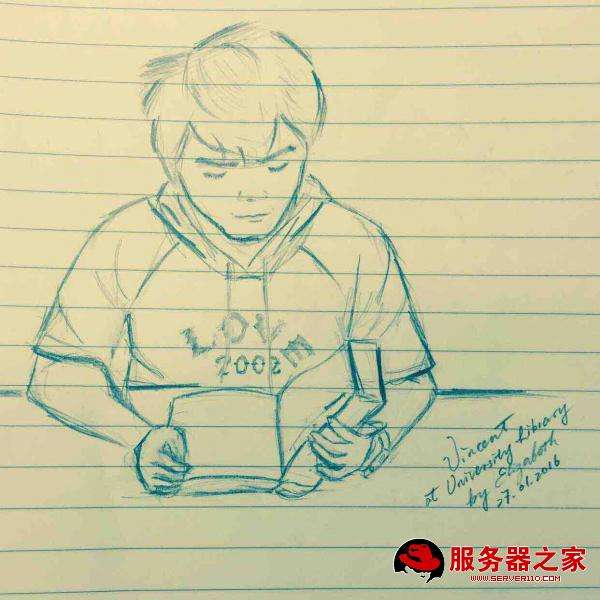 LOL
2002
Vincent
at University Library
by Elizabeth
27.01.2016
服务器之家
WWW.SERVER110.COM